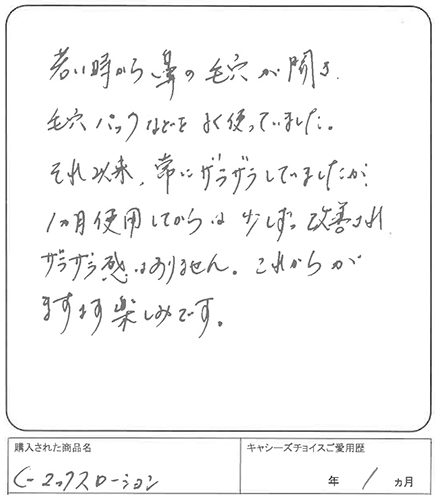 若い時から鼻の毛穴が開き、
毛穴パックなどをよく使っていました。
それ以来、常にザラザラしていましたが、
1ヵ月使用してからは少しずつ改善され
ザラザラ感はありません。これからが
ますます楽しみです。
購入された商品名
C-マックスローション
キャシーズチョイスご愛用歴
年 1 ヵ月